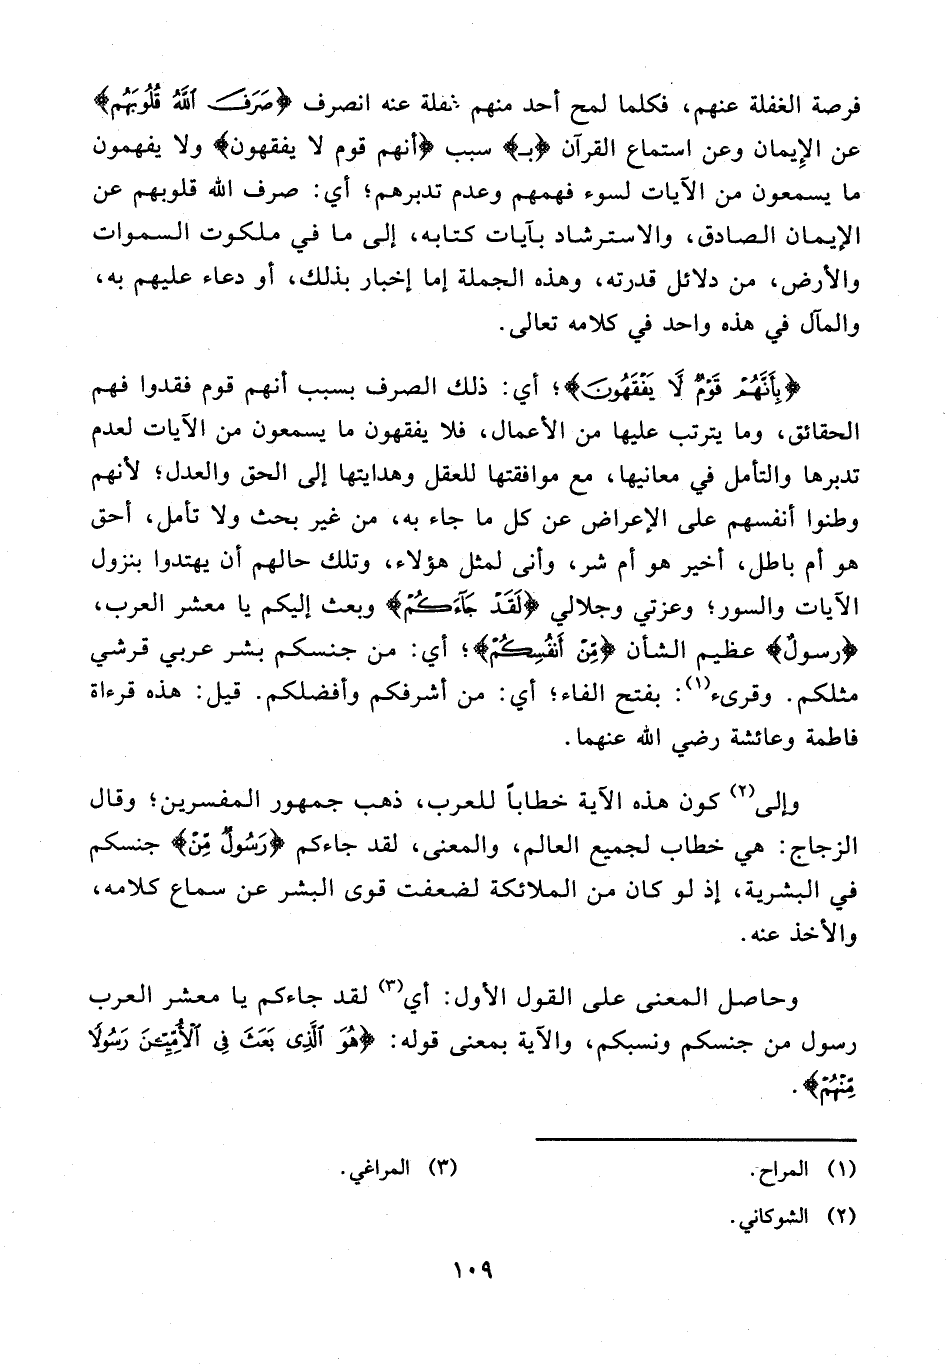 فرصة الغفلة عنهم، فكلما لمح أحد منهم غفلة عنه انصرف ﴿صَرَفَ ٱللَّهُ قُلُوبَهُم﴾
عن الإيمان وعن استماع القرآن ﴿بـ﴾ سبب ﴿أنهم قوم لا يفقهون﴾ ولا يفهمون
ما يسمعون من الآيات لسوء فهمهم وعدم تدبرهم؛ أي: صرف الله قلوبهم عن
الإيمان الصادق، والاسترشاد بآيات كتابه، إلى ما في ملكوت السموات
والأرض، من دلائل قدرته، وهذه الجملة إما إخبار بذلك، أو دعاء عليهم به،
والمآل في هذه واحد في كلامه تعالى.
﴿بِأَنَّهُمْ قَوْمٌ لَّا يَفْقَهُونَ﴾؛ أي: ذلك الصرف بسبب أنهم قوم فقدوا فهم
الحقائق، وما يترتب عليها من الأعمال، فلا يفقهون ما يسمعون من الآيات لعدم
تدبرها والتأمل في معانيها، مع موافقتها للعقل وهدايتها إلى الحق والعدل؛ لأنهم
وطنوا أنفسهم على الإعراض عن كل ما جاء به، من غير بحث ولا تأمل، أحق
هو أم باطل، أخير هو أم شر، وأنى لمثل هؤلاء، وتلك حالهم أن يهتدوا بنزول
الآيات والسور؛ وعزتي وجلالي ﴿لَقَدْ جَآءَكُمْ﴾ وبعث إليكم يا معشر العرب،
﴿رسولٌ﴾ عظيم الشأن ﴿مِّنْ أَنفُسِكُمْ﴾؛ أي: من جنسكم بشر عربي قرشي
مثلكم. وقرىء(١): بفتح الفاء؛ أي: من أشرفكم وأفضلكم. قيل: هذه قرءاة
فاطمة وعائشة رضي الله عنهما.
وإلى(٢) كون هذه الآية خطاباً للعرب، ذهب جمهور المفسرين؛ وقال
الزجاج: هي خطاب لجميع العالم، والمعنى، لقد جاءكم ﴿رَسُولٌ مِّنْ﴾ جنسكم
في البشرية، إذ لو كان من الملائكة لضعفت قوى البشر عن سماع كلامه،
والأخذ عنه.
وحاصل المعنى على القول الأول: أي(٣) لقد جاءكم يا معشر العرب
رسول من جنسكم ونسبكم، والآية بمعنى قوله: ﴿هُوَ ٱلَّذِى بَعَثَ فِى ٱلْأُمِّيِّـۧنَ رَسُولًا
مِّنْهُمْ﴾.
(١) المراح. (٣) المراغي.
(٢) الشوكاني.
١٠٩